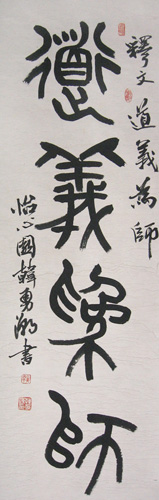 道義為師
釋文道義為師
怡心園韓勇㴑書